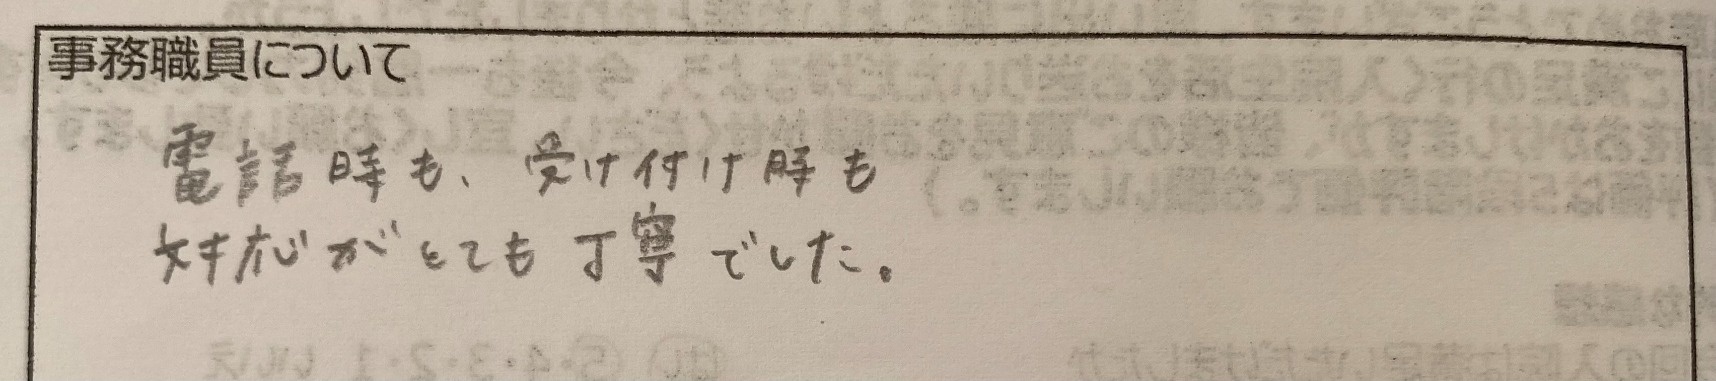 事務職員について
電話時も、受け付け時も
対応がとても丁寧でした。